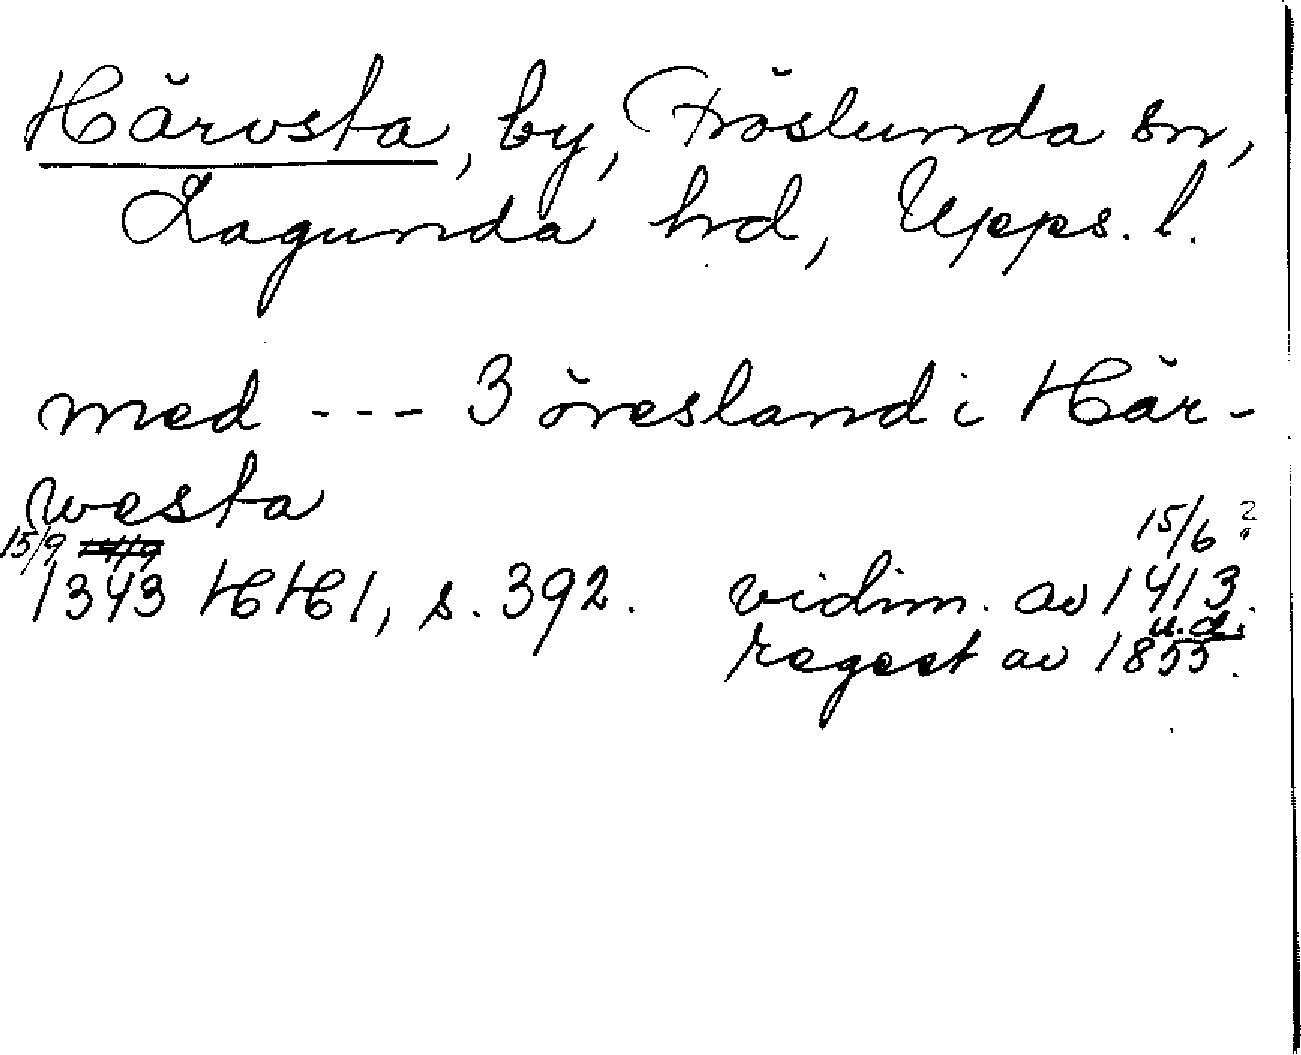 Härvsta, by, Fröslunda sn,
Lagunda hd, Upps. l.
med --- 3 öresland i Här-
westa
15/9 15/6 ?
1343 HH 1, s. 392. vidim. av 1413.
u.d.
regest av 1855.